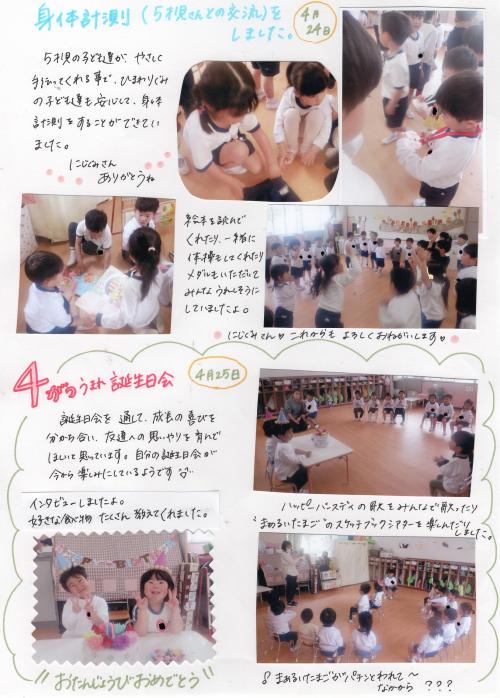 身体計測（5才児さんとの交流）を
しました。
4月
24日
5才児の子ども達が、やさしく
手伝ってくれる事で、ひまわりぐみ
の子ども達も安心して、身体
計測をすることができてい
ました。
にじぐみさん
ありがとうね
絵本を読んで
くれたり、一緒に
体操もしてくれたり
メダルもいただいて
みんなうれしそうに
していましたよ。
にじぐみさん♡これからもよろしくおねがいします♡
4がつうまれ誕生日会
4月25日
誕生日会を通して、成長の喜びを
分かち合い、友達への思いやりを育んで
ほしいと思っています。自分の誕生日会が
今から楽しみにしているようです
インタビューしましたよ。
好きな食べ物たくさん教えてくれました。
ハッピーバースディの歌をみんなで歌ったり
"まあるいたまご"のスケッチブックシアターを楽しんだり
しました。
おたんじょうびおめでとう
♪まあるいたまごがパチンとわれて〜
なかから ???